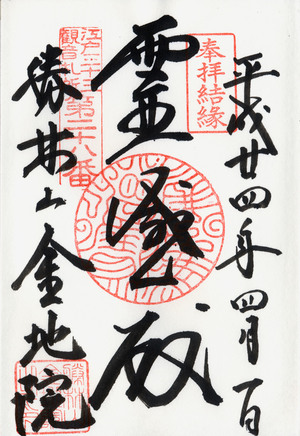 奉拝結縁
平成廿四年四月一日
霊感殿
江戸三十三
観音札所
第二十八番
勝林山金地院